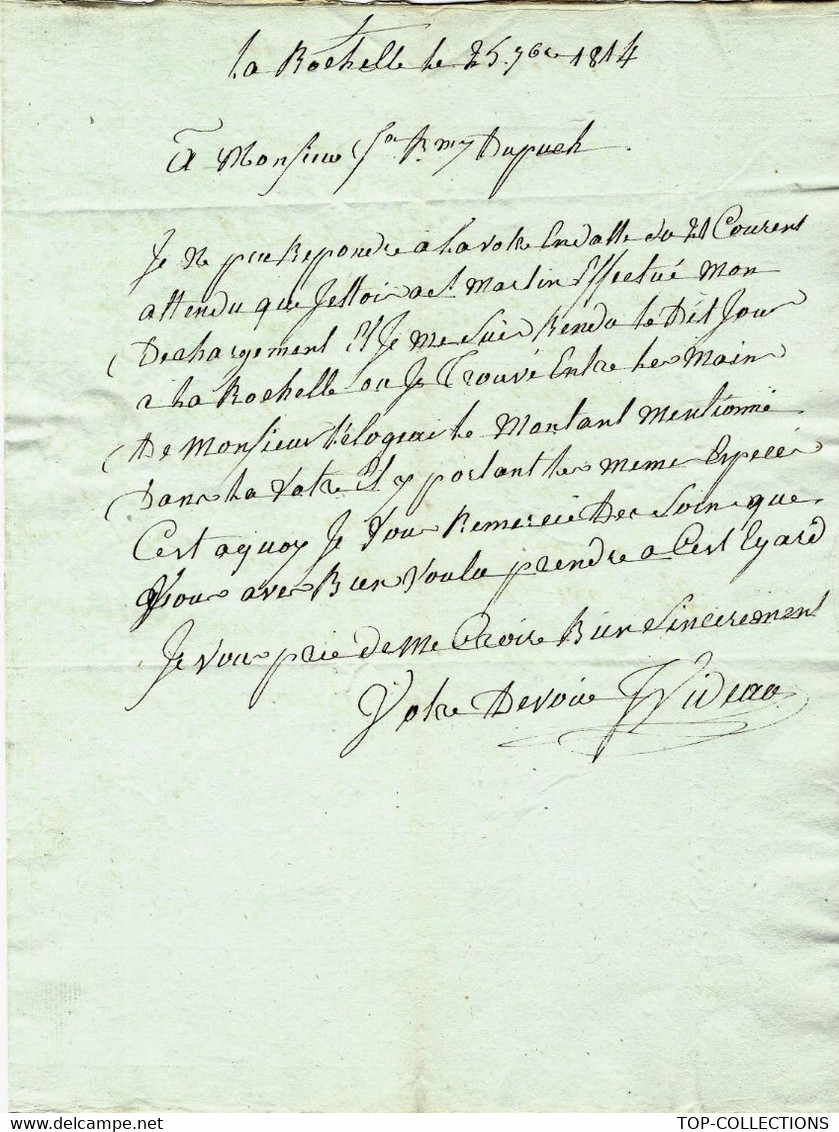 La Rochelle le 25 7bre 1814
A Monsieur Jn Rmy Dupuch
Je ne peu Repondre a La votre En datte du 21 Courent
attendu que Jettois a St Martin Effectué mon
Dechargement Et Je me suis Rendu le Dit Jour
a La Rochelle ou Je Trouvé Entre Les Mains
De Monsieur le Montant mentionné
Dans La Votre Et y portant les meme Especes
C'est a quoy Je Vous Remercie Des Soins que
Vous aves Bien Voulu prendre a Cest Egard
Je Vous prie de me Croire Bien Sincerement
Votre Devoué Videau
TOP-COLLECTIONS